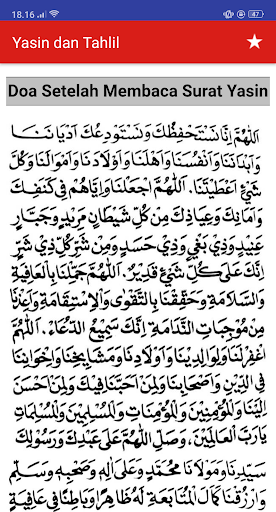 18.16
47
Yasin dan Tahlil
Doa Setelah Membaca Surat Yasin
اَللّٰهُمَّ اِنَّا نَسْتَحْفِظُكَ وَنَسْتَوْدِعُكَ اَدْيَانَنَا
وَاَبْدَانَنَا وَاَنْفُسَنَا وَاَهْلَنَا وَاَوْلَادَنَا وَاَمْوَالَنَا وَكُلَّ
شَيْءٍ اَعْطَيْتَنَا. اَللّٰهُمَّ اجْعَلْنَا وَاِيَّاهُمْ فِيْ كَنَفِكَ
وَاَمَانِكَ وَعِيَاذِكَ مِنْ كُلِّ شَيْطَانٍ مَرِيْدٍ وَجَبَّارٍ
عَنِيْدٍ وَذِيْ بَغْيٍ وَذِيْ حَسَدٍ وَمِنْ شَرِّ كُلِّ ذِيْ شَرٍّ
اِنَّكَ عَلٰى كُلِّ شَيْءٍ قَدِيْرٌ. اَللّٰهُمَّ جَمِّلْنَا بِالْعَافِيَةِ
وَالسَّلَامَةِ وَحَقِّقْنَا بِالتَّقْوٰى وَالْاِسْتِقَامَةِ وَاَعِذْنَا
مِنْ مُوْجِبَاتِ النَّدَامَةِ اِنَّكَ سَمِيْعُ الدُّعَاءِ. اَللّٰهُمَّ
اغْفِرْ لَنَا وَلِوَالِدِيْنَا وَاَوْلَادِنَا وَمَشَايِخِنَا وَاِخْوَانِنَا
فِي الدِّيْنِ وَاَصْحَابِنَا وَلِمَنْ اَحَبَّنَا فِيْكَ وَلِمَنْ اَحْسَنَ
اِلَيْنَا وَلِلْمُؤْمِنِيْنَ وَالْمُؤْمِنَاتِ وَالْمُسْلِمِيْنَ وَالْمُسْلِمَاتِ
يَارَبَّ الْعَالَمِيْنَ، وَصَلِّ اللّٰهُمَّ عَلٰى عَبْدِكَ وَرَسُوْلِكَ
سَيِّدِنَا وَمَوْلَانَا مُحَمَّدٍ وَعَلٰى اٰلِهِ وَصَحْبِهِ وَسَلِّمْ
وَارْزُقْنَا كَمَالَ الْمُتَابَعَةِ لَهُ ظَاهِرًا وَبَاطِنًا فِيْ عَافِيَةٍ